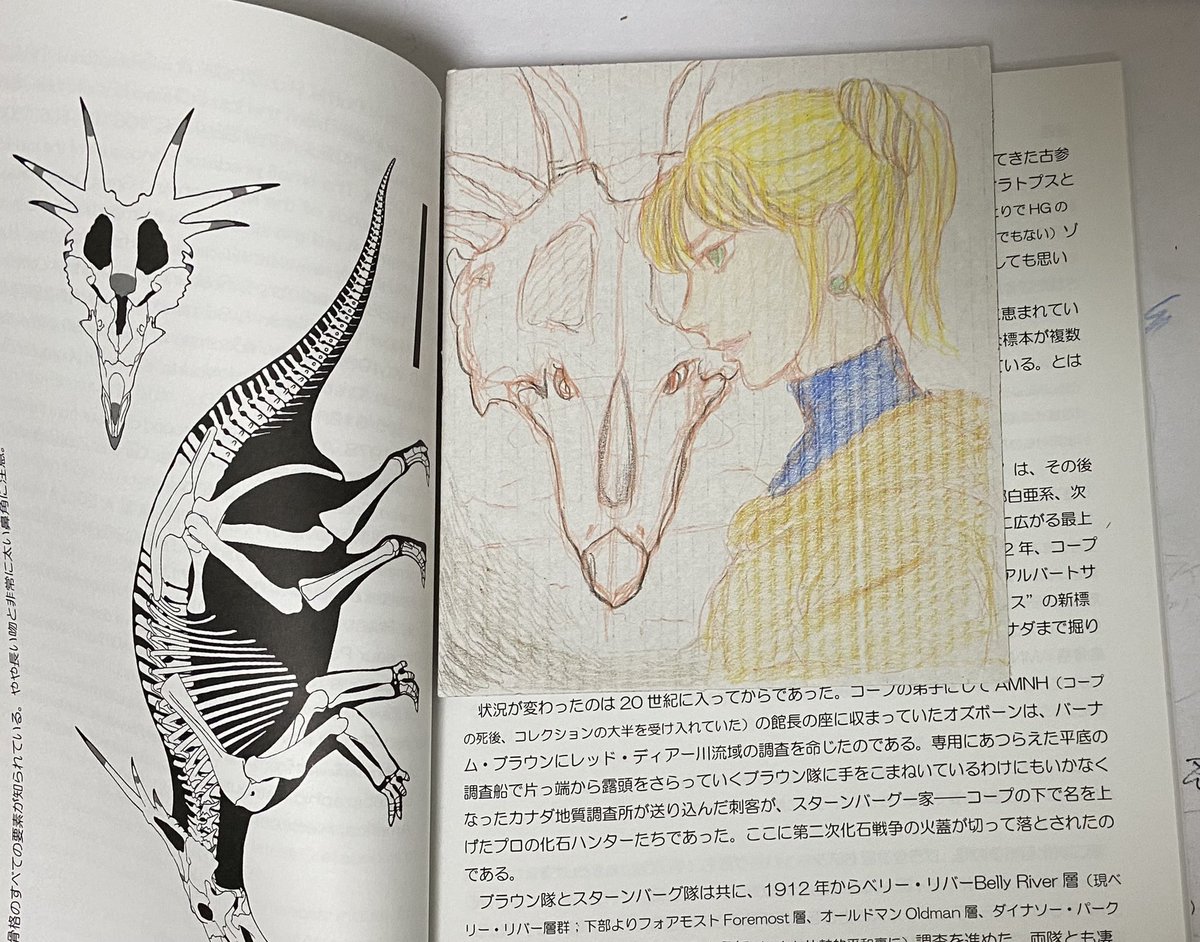 骨格のすべての要素が知られている。やや長い吻と非常に太い鼻角に注意。
てきた古参
ラトプスと
りでHGの
でもない）ゾ
しても思い
に恵まれてい
な標本が複数
ている。とは
は、その後
部白亜系、次
に広がる最上
2年、コープ
アルバートサ
ス”の新標
ナダまで掘り
状況が変わったのは20世紀に入ってからであった。コープの弟子にしてAMNH（コープ
の死後、コレクションの大半を受け入れていた）の館長の座に収まっていたオズボーンは、バーナ
ム・ブラウンにレッド・ディアー川流域の調査を命じたのである。専用にあつらえた平底の
調査船で片っ端から露頭をさらっていくブラウン隊に手をこまねいているわけにもいかなく
なったカナダ地質調査所が送り込んだ刺客が、スターンバーグ一家――コープの下で名を上
げたプロの化石ハンターたちであった。ここに第二次化石戦争の火蓋が切って落とされたの
である。
ブラウン隊とスターンバーグ隊は共に、1912年からベリー・リバーBelly River層（現ベ
リー・リバー層群；下部よりフォアモストForemost層、オールドマンOldman層、ダイナソー・パーク
調査を進めた。両隊とも凄